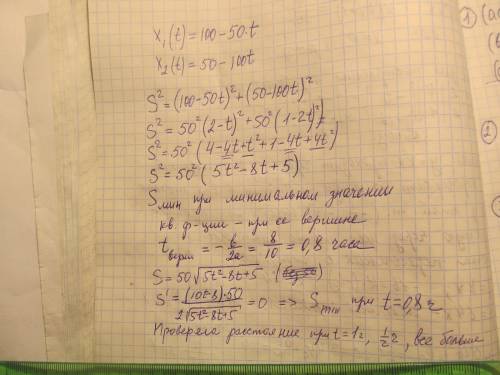 x₁(t) = 100 - 50·t
x₂(t) = 50 - 100t
S² = (100-50t)² + (50-100t)²
S² = 50²(2-t)² + 50²(1-2t)²
S² = 50²(4-4t+t²+1-4t+4t²)
S² = 50²(5t²-8t+5)
Sмин при минимальном значении
кв. ф-ции - при ее вершине
t верш = -b/2a = 8/10 = 0,8 часа
S = 50√(5t²-8t+5)
S' = (10t-8)·50 / 2√(5t²-8t+5) = 0 => Smin при t=0,8ч
Проверела расстояние при t=1ч, 1/2ч, все больше
1) (a
(
2)